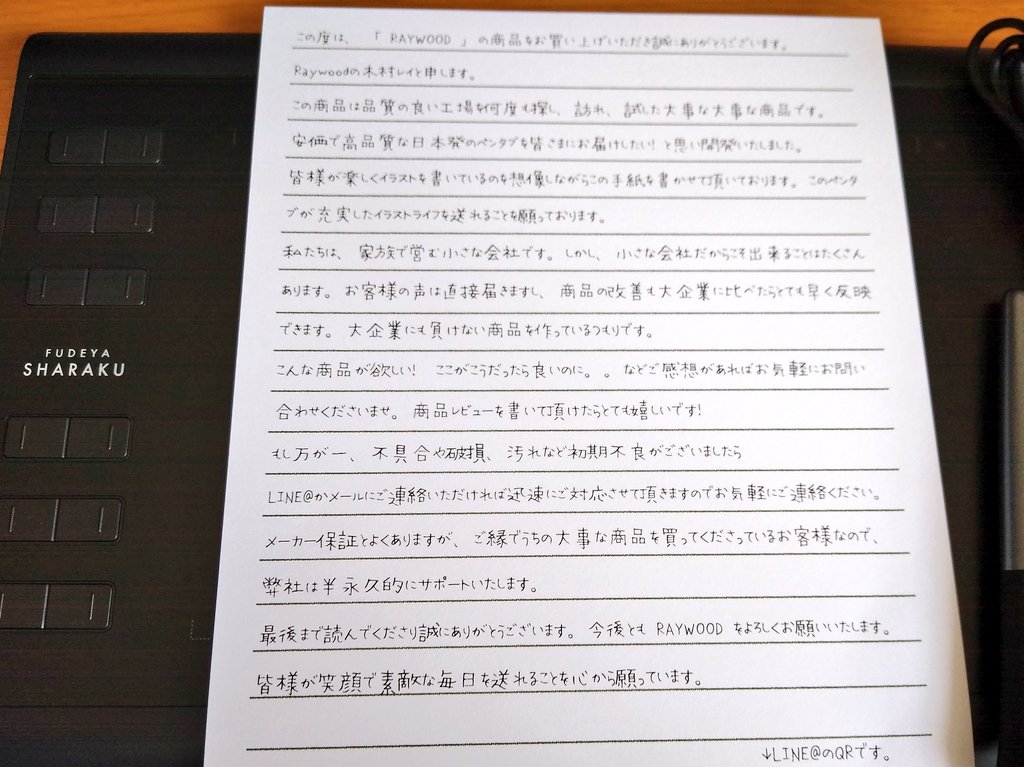 この度は、 「 RAYWOOD 」 の商品をお買い上げいただき誠にありがとうございます。
Raywoodの木村レイと申します。
この商品は品質の良い工場を何度も探し、 訪れ、 試した大事な大事な商品です。
安価で高品質な日本発のペンタブを皆さまにお届けしたい! と思い開発いたしました。
皆様が楽しくイラストを書いているのを想像しながらこの手紙を書かせて頂いております。 このペンタ
ブが充実したイラストライフを送れることを願っております。
私たちは、 家族で営む小さな会社です。 しかし、 小さな会社だからこそ出来ることはたくさん
あります。 お客様の声は直接届きますし、 商品の改善も大企業に比べたらとても早く反映
できます。 大企業にも負けない商品を作っているつもりです。
こんな商品が欲しい! ここがこうだったら良いのに。。 などご感想があればお気軽にお問い
合わせくださいませ。 商品レビューを書いて頂けたらとても嬉しいです!
もし万が一、 不具合や破損、 汚れなど初期不良がございましたら
LINE@かメールにご連絡いただければ迅速にご対応させて頂きますのでお気軽にご連絡ください。
メーカー保証とよくありますが、 ご縁でうちの大事な商品を買ってくださっているお客様なので、
弊社は半永久的にサポートいたします。
最後まで読んでくださり誠にありがとうございます。 今後とも RAYWOOD をよろしくお願いいたします。
皆様が笑顔で素敵な毎日を送れることを心から願っています。
↓LINE@のQRです。
FUDEYA
SHARAKU